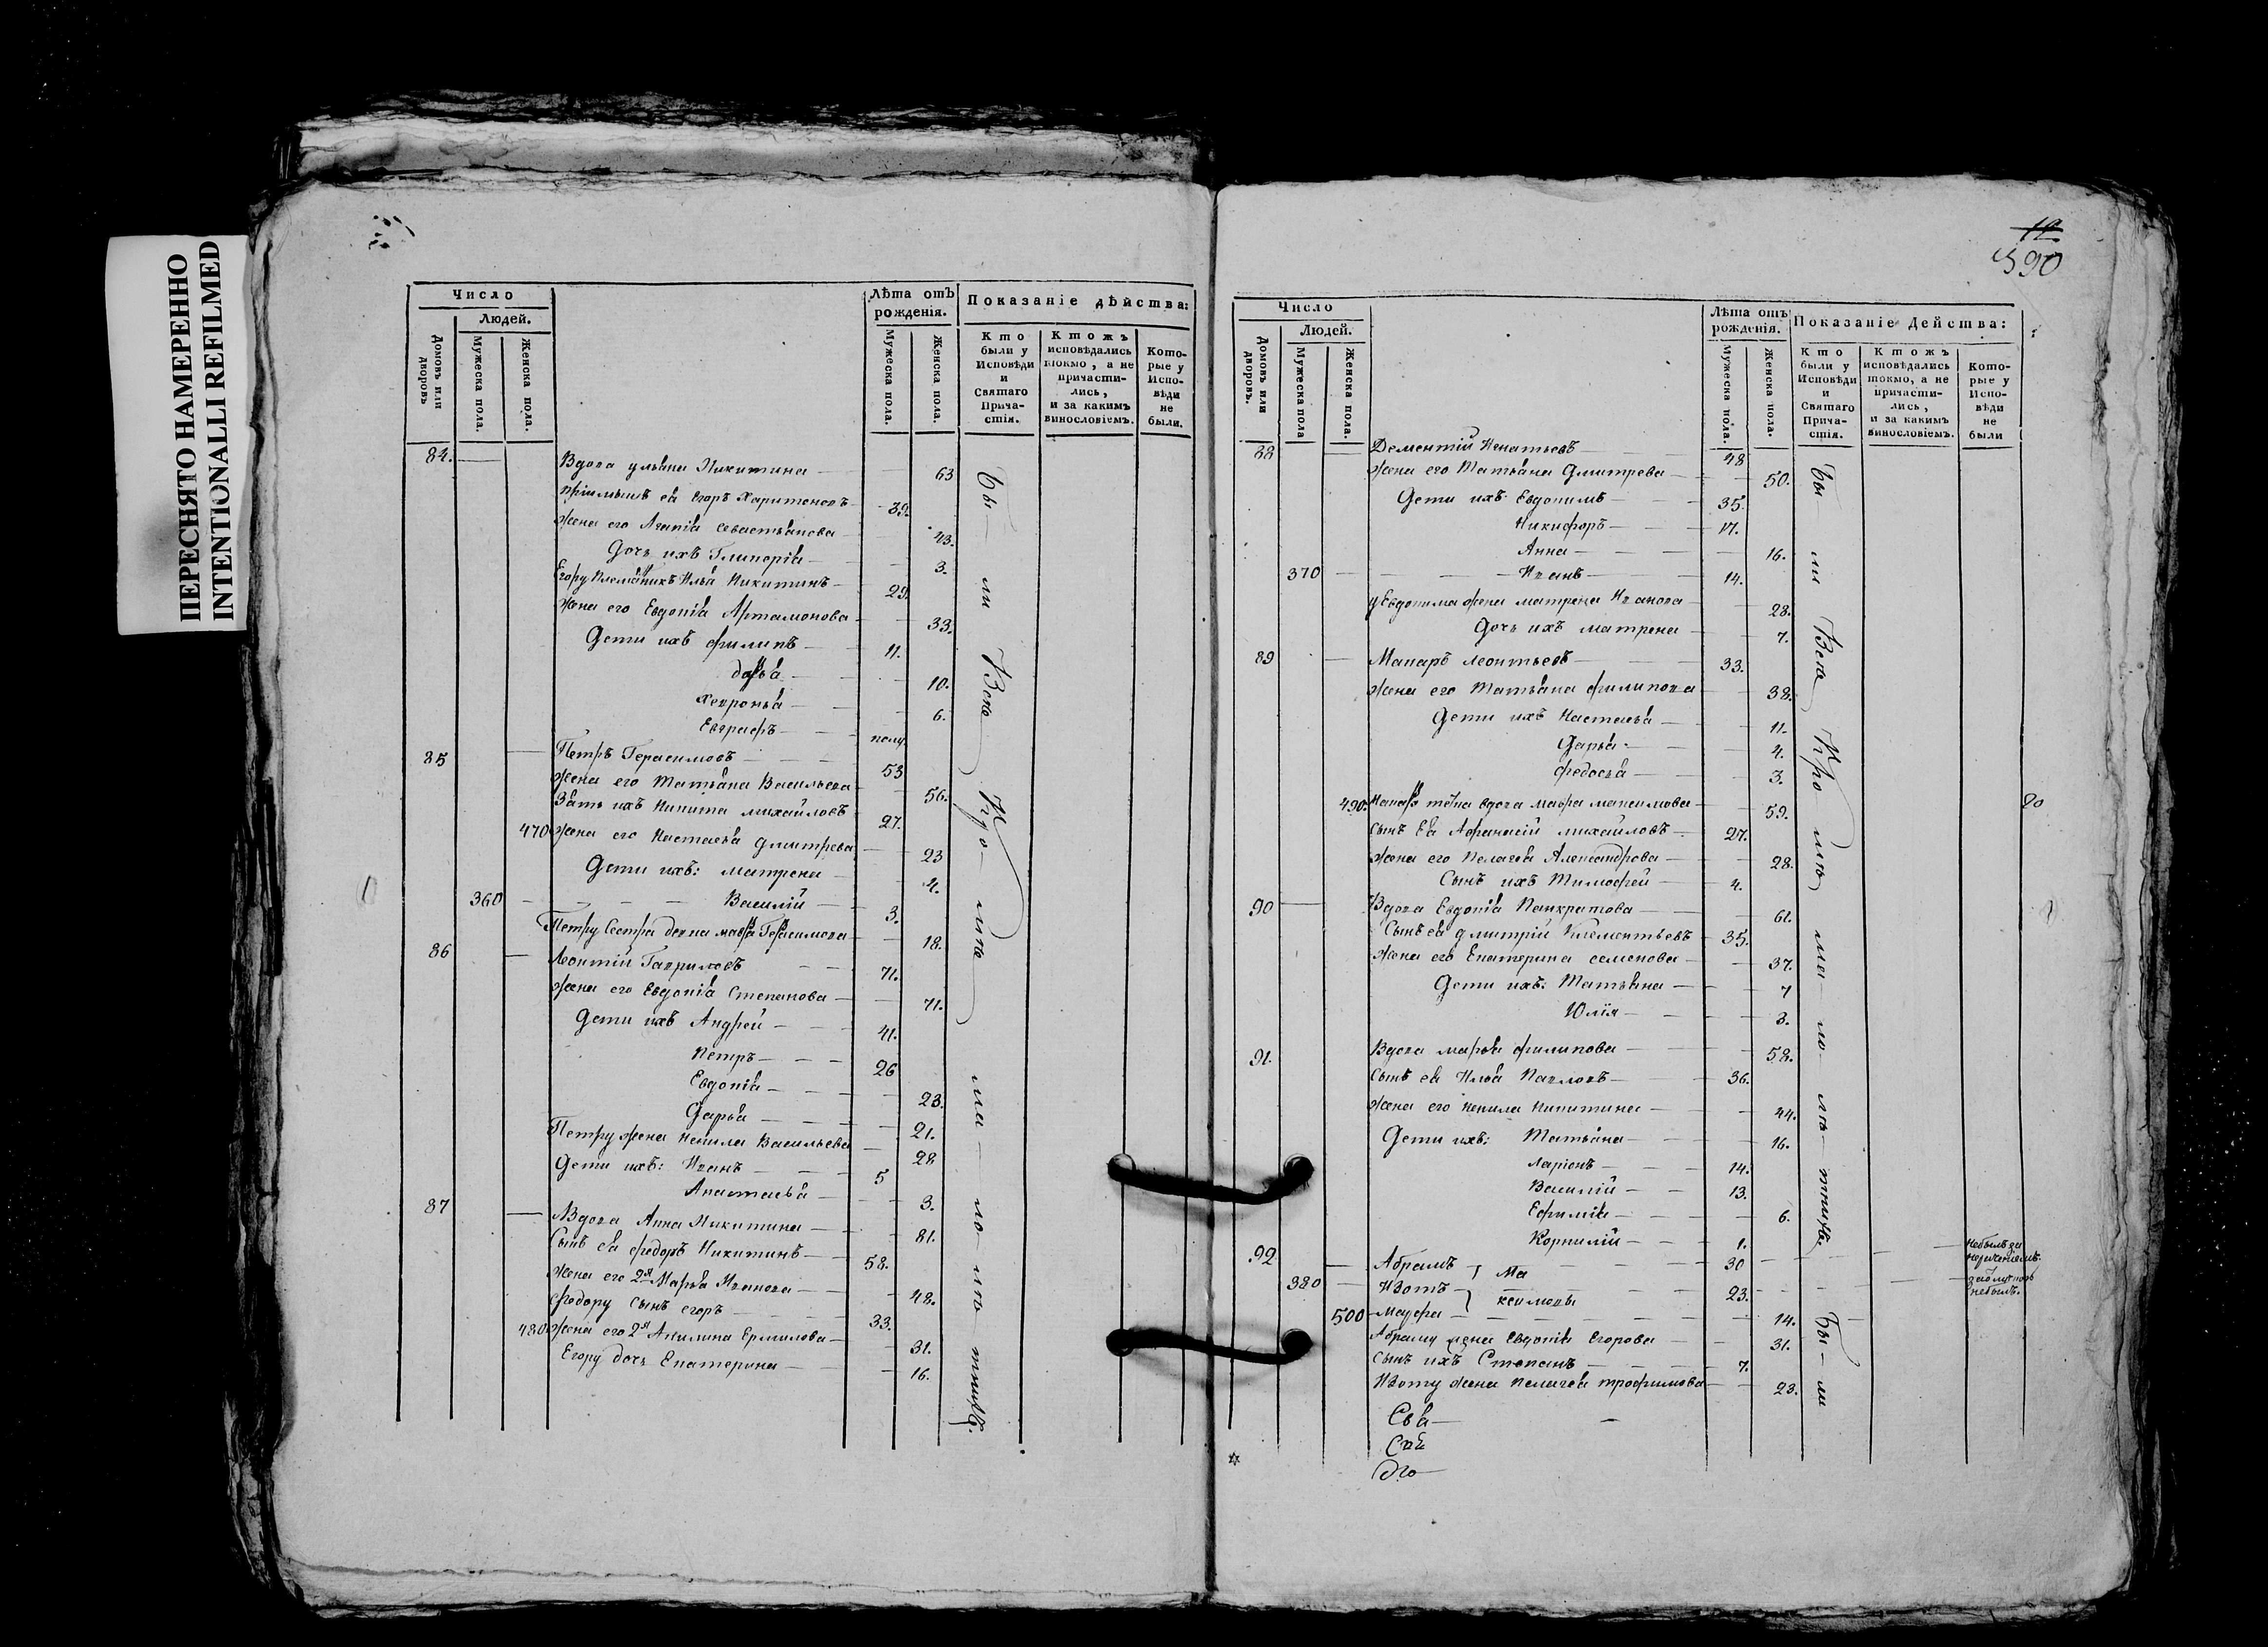 ПЕРЕСНЯТО НАМЕРЕННО
INTENTIONALLI REFILMED
Число
Людей.
Домовъ или дворовъ
Мужеска пола.
Женска пола.
Лѣта отъ рожденія.
Мужеска пола.
Женска пола.
Показаніе дѣйства:
Кто были у Исповѣди и Святаго Прича-стія.
Ктожъ исповѣдались токмо, а не причасти-лись, и за какимъ винословіемъ.
Кото-рые у Испо-вѣди не были.
84. Вдова Ульяна Никитина 63
Пріимышъ ея Егоръ Харитоновъ 39.
Жена его Агапія Севастьянова 43.
Дочь ихъ Гликерія 3.
Егору племянникъ Илья Никитинъ 29.
Жена его Евдокія Артамонова 33.
Дети ихъ Филипъ 11.
Дарья 10.
Хевронья 6.
Евграфъ полу.
85 Петръ Герасимовъ 53
Жена его Татьяна Васильева 56.
Зять ихъ Никита Михайловъ 27.
470 Жена его Настасья Дмитрева 23
Дети ихъ: Матрена 4.
360 Василій 3.
Петру сестра девка Мавра Герасимова 18.
86 Леонтій Гавриловъ 71.
Жена его Евдокія Степанова 71.
Дети ихъ Андрей 41.
Петръ 26
Евдокія 23.
Дарья 21.
Петру жена Ненила Васильева 28
Дети ихъ: Иванъ 5
Анастасья 3.
87 Вдова Анна Никитина 81.
Сынъ ея Федоръ Никитинъ 58.
Жена его 2я Марья Иванова 48.
Федору сынъ Егоръ 33.
480 Жена его 2я Акилина Ермилова 31.
Егору дочь Екатерина 16.
Бы ли Всѣ Кро мѣ ма ло лѣ тнихъ.
390
Число
Людей.
Домовъ или дворовъ.
Мужеска пола
Женска пола.
Лѣта отъ рожденія.
Мужеска пола.
Женска пола.
Показаніе Действа:
Кто были у Исповѣди и Святаго Прича-стія.
Ктожъ исповѣдались токмо, а не причасти-лись, и за какимъ винословіемъ.
Кото-рые у Испо-вѣди не были
88 Дементій Игнатьевъ 48
Жена его Татьяна Дмитрева 50.
Дети ихъ: Евдокимъ 35.
Никифоръ 17.
Анна 16.
370 Иванъ 14.
У Евдокима жена Матрена Иванова 28.
Дочь ихъ Матрена 7.
89 Макаръ Леонтьевъ 33.
Жена его Татьяна Филипова 38.
Дети ихъ Настасья 11.
Дарья 4.
Федосья 3.
490. Макару тётка вдова Мавра Максимова 59.
Сынъ ея Афанасій Михайловъ 27.
Жена его Пелагея Александрова 28.
Сынъ ихъ Тимофей 4.
90 Вдова Евдокія Панкратова 61.
Сынъ ея Дмитрій Клементьевъ 35.
Жена его Екатерина Семенова 37.
Дети ихъ: Татьяна 7
Юлія 3.
91. Вдова Марья Филипова 58.
Сынъ ея Илья Павловъ 36.
Жена его Ненила Никитина 44.
Дети ихъ: Татьяна 16.
Ларіонъ 14.
Василій 13.
Ефимія 6.
Корнилій 1.
92. Абрамъ 30
380 Изотъ } Максимовы 23.
500 Мавра 14.
Абраму жена Евдокія Егорова 31.
Сынъ ихъ Степанъ 7.
Изоту жена Пелагея Трофимова 23.
Бы ли Всѣ Кро мѣ ма ло лѣ тнихъ
Бы ли
небылъ за
небылъ.